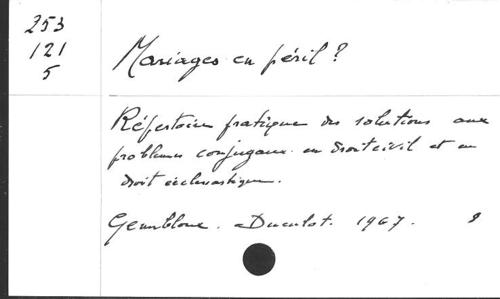 253
121
5
Mariages en péril ?
Répertoire pratique des solutions aux
problemes conjugaux en droit civil et en
droit ecclesiastique.
Gembloux. Duculot. 1967.